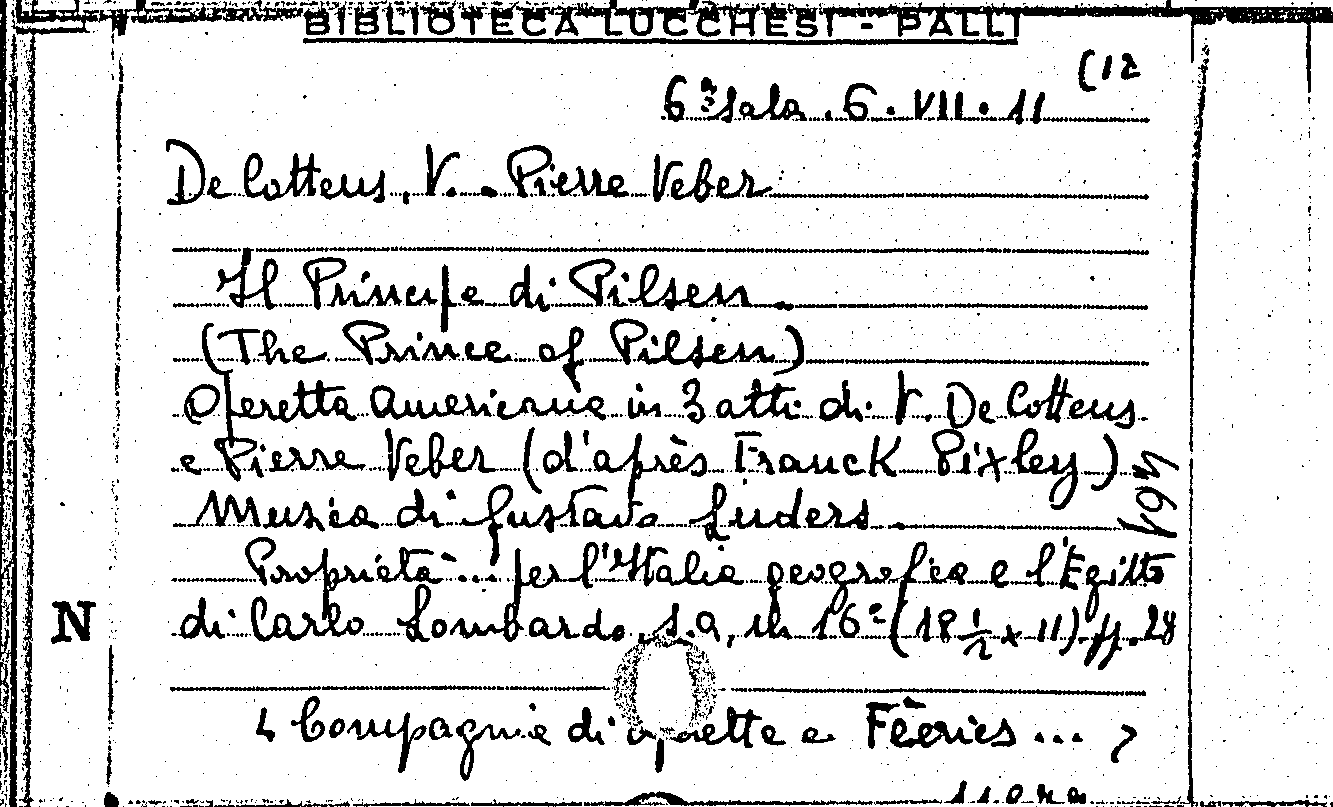 BIBLIOTECA LUCCHESI - PALLI
(12
6ª Sala. 6. VII. 11
De Cottens, V. - Pierre Veber
Il Principe di Pilsen.
(The Prince of Pilsen)
Operetta americana in 3 atti di V. De Cottens
e Pierre Veber (d'après Franck Pixley)
Musica di Gustavo Luders.
Proprietà... per l'Italia geografica e l'Egitto
di Carlo Lombardo, s.a, in 16º (18 1/2 x 11) pp. 28
N
< Compagnia di operette e Fèeries ... >